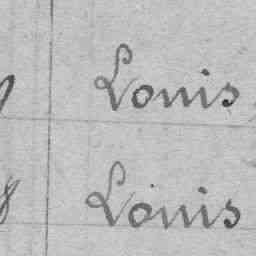 Louis
8 Louis